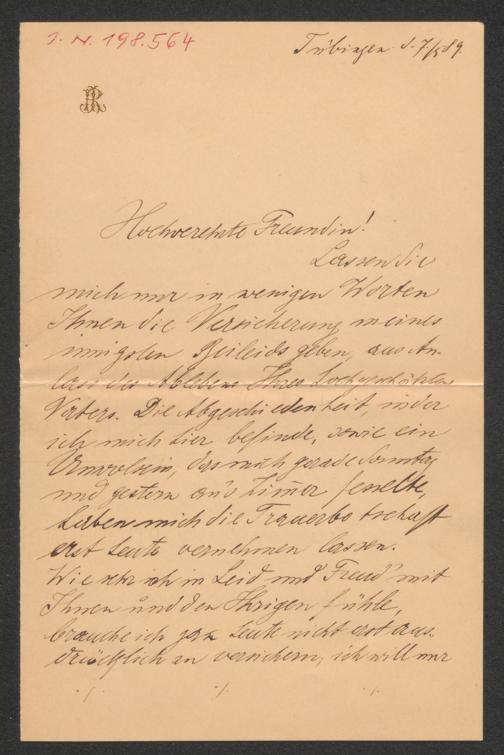 J. N. 198.564
Tübingen d. 7./3 89.
Hochverehrte Freundin!
Lassen Sie
mich nur in wenigen Worten
Ihnen die Versicherung meines
innigsten Beileids geben, aus An-
lass des Ablebens Ihres hochgeschätzten
Vaters. Die Abgeschiedenheit, in der
ich mich hier befinde, sowie ein
Unwohlsein, das mich gerade Sonntag
und gestern an's Zimmer fesselte,
haben mich die Trauerbotschaft
erst heute vernehmen lassen.
Wie sehr ich in Leid und Freud' mit
Ihnen und den Ihrigen fühle,
brauche ich ja heute nicht erst aus-
drücklich zu versichern, ich will nur
./. ./. ./.